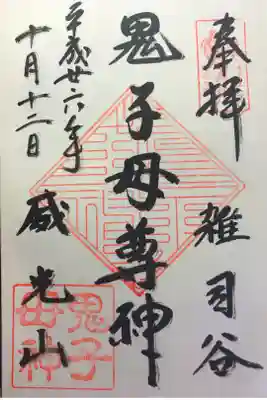 奉拝 雑司谷
鬼子母尊神
平成廿六年
十月十二日
威光山
鬼子
母神